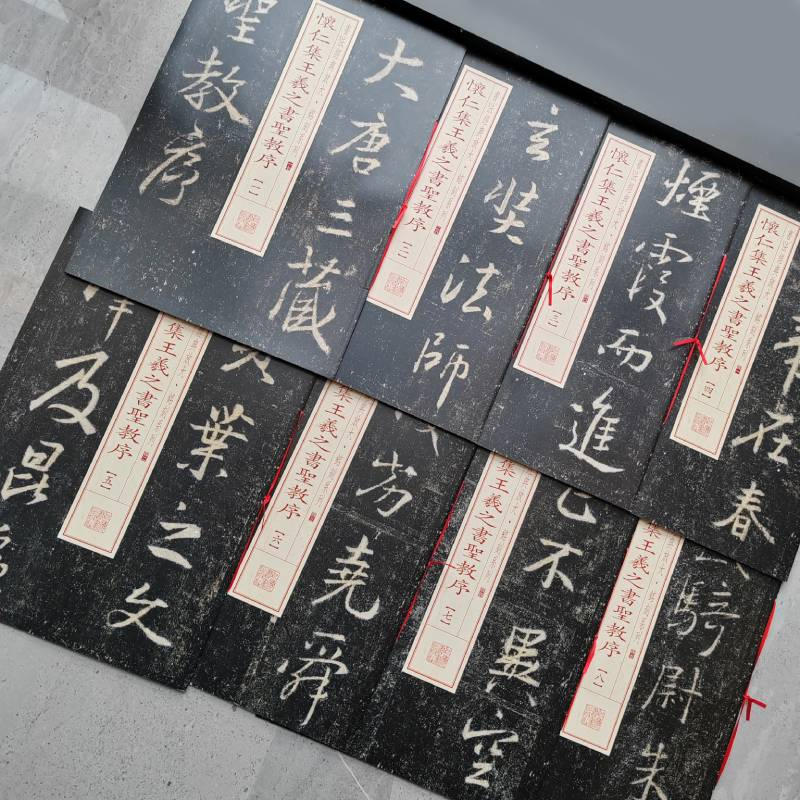 大唐三藏
聖教序
懷仁集王羲之書聖教序
【一】
玄奘法師
懷仁集王羲之書聖教序
【二】
煙霞而進
懷仁集王羲之書聖教序
【三】
在春
懷仁集王羲之書聖教序
【四】
葉之文
及昆
集王羲之書聖教序
【五】
芳堯舜
集王羲之書聖教序
【六】
已不異空
集王羲之書聖教序
【七】
騎尉朱
集王羲之書聖教序
【八】